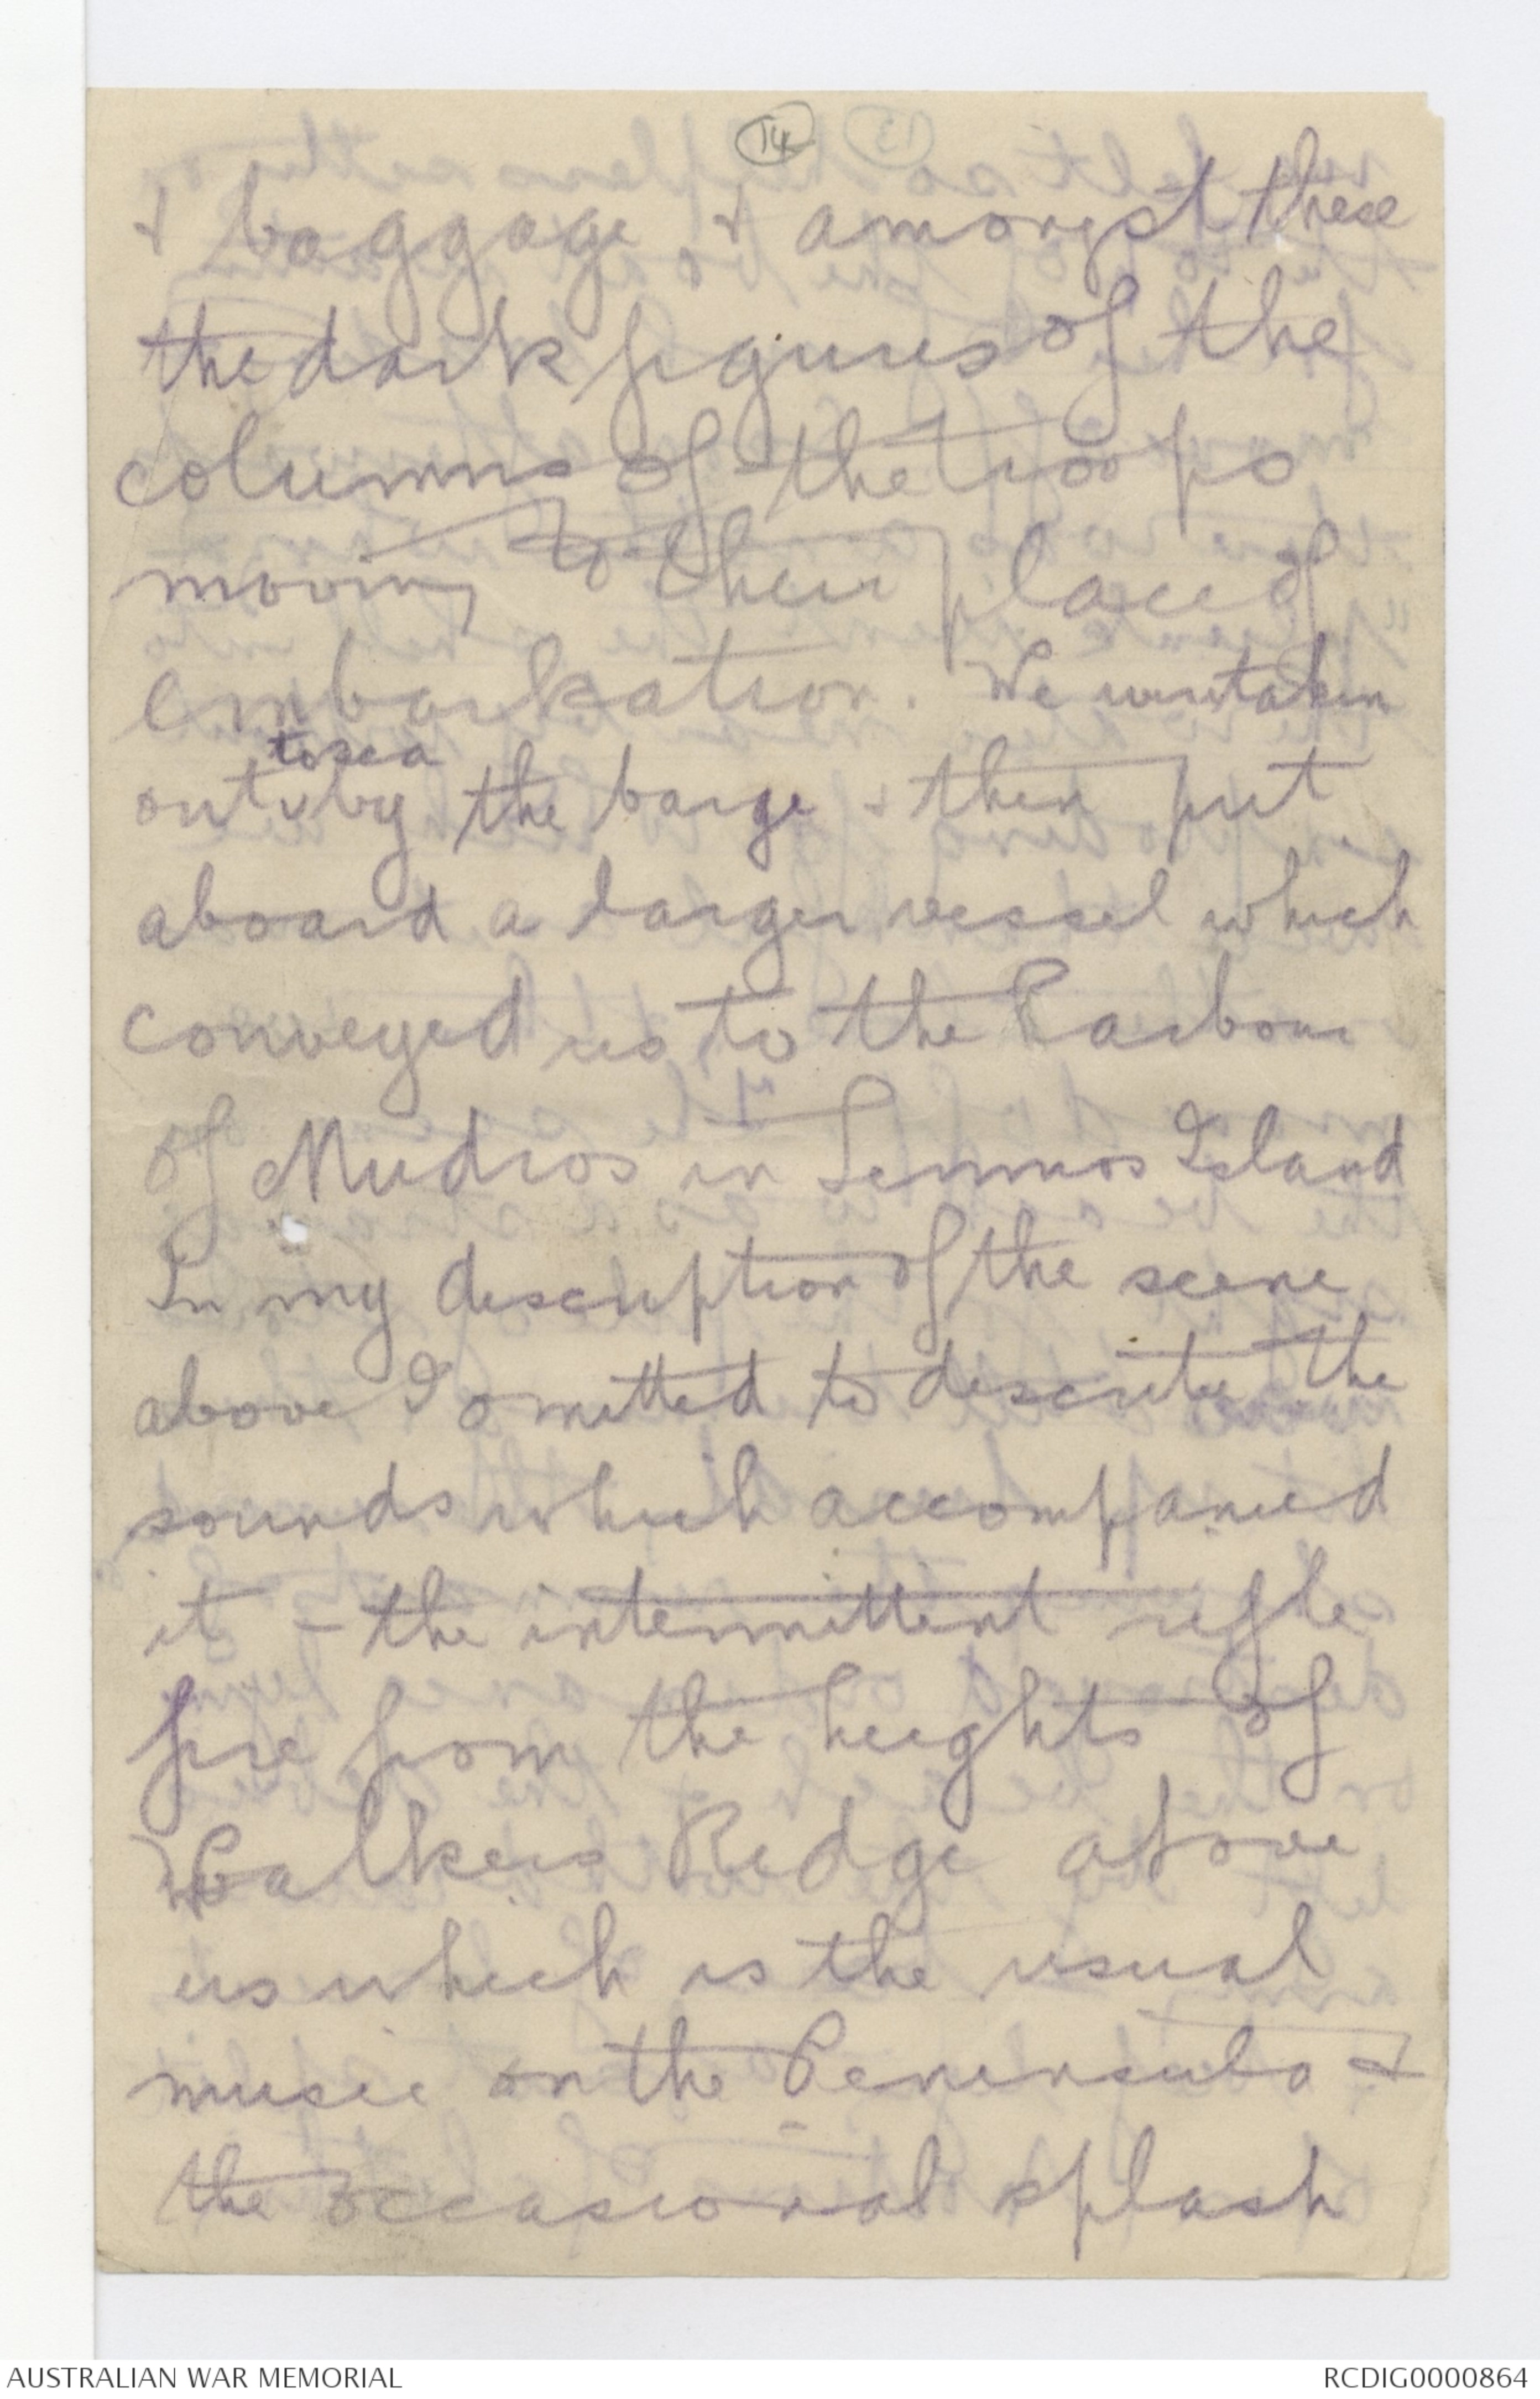 14
+ baggage + amongst these
the dark figures of the
columns of the troops
moving to their place of
embarkation. We were taken
to sea
out by the barge + then put
aboard a larger vessel which
conveyed us to the Harbour
of Mudros in Lemnos Island
In my description of the scene
above I omitted to describe the
sounds which accompanied
it - the intermittent rifle
fire from the heights of
Walkers Ridge above
us which is the usual
music on the Peninsula +
the occasional splash
AUSTRALIAN WAR MEMORIAL
RCDIG0000864